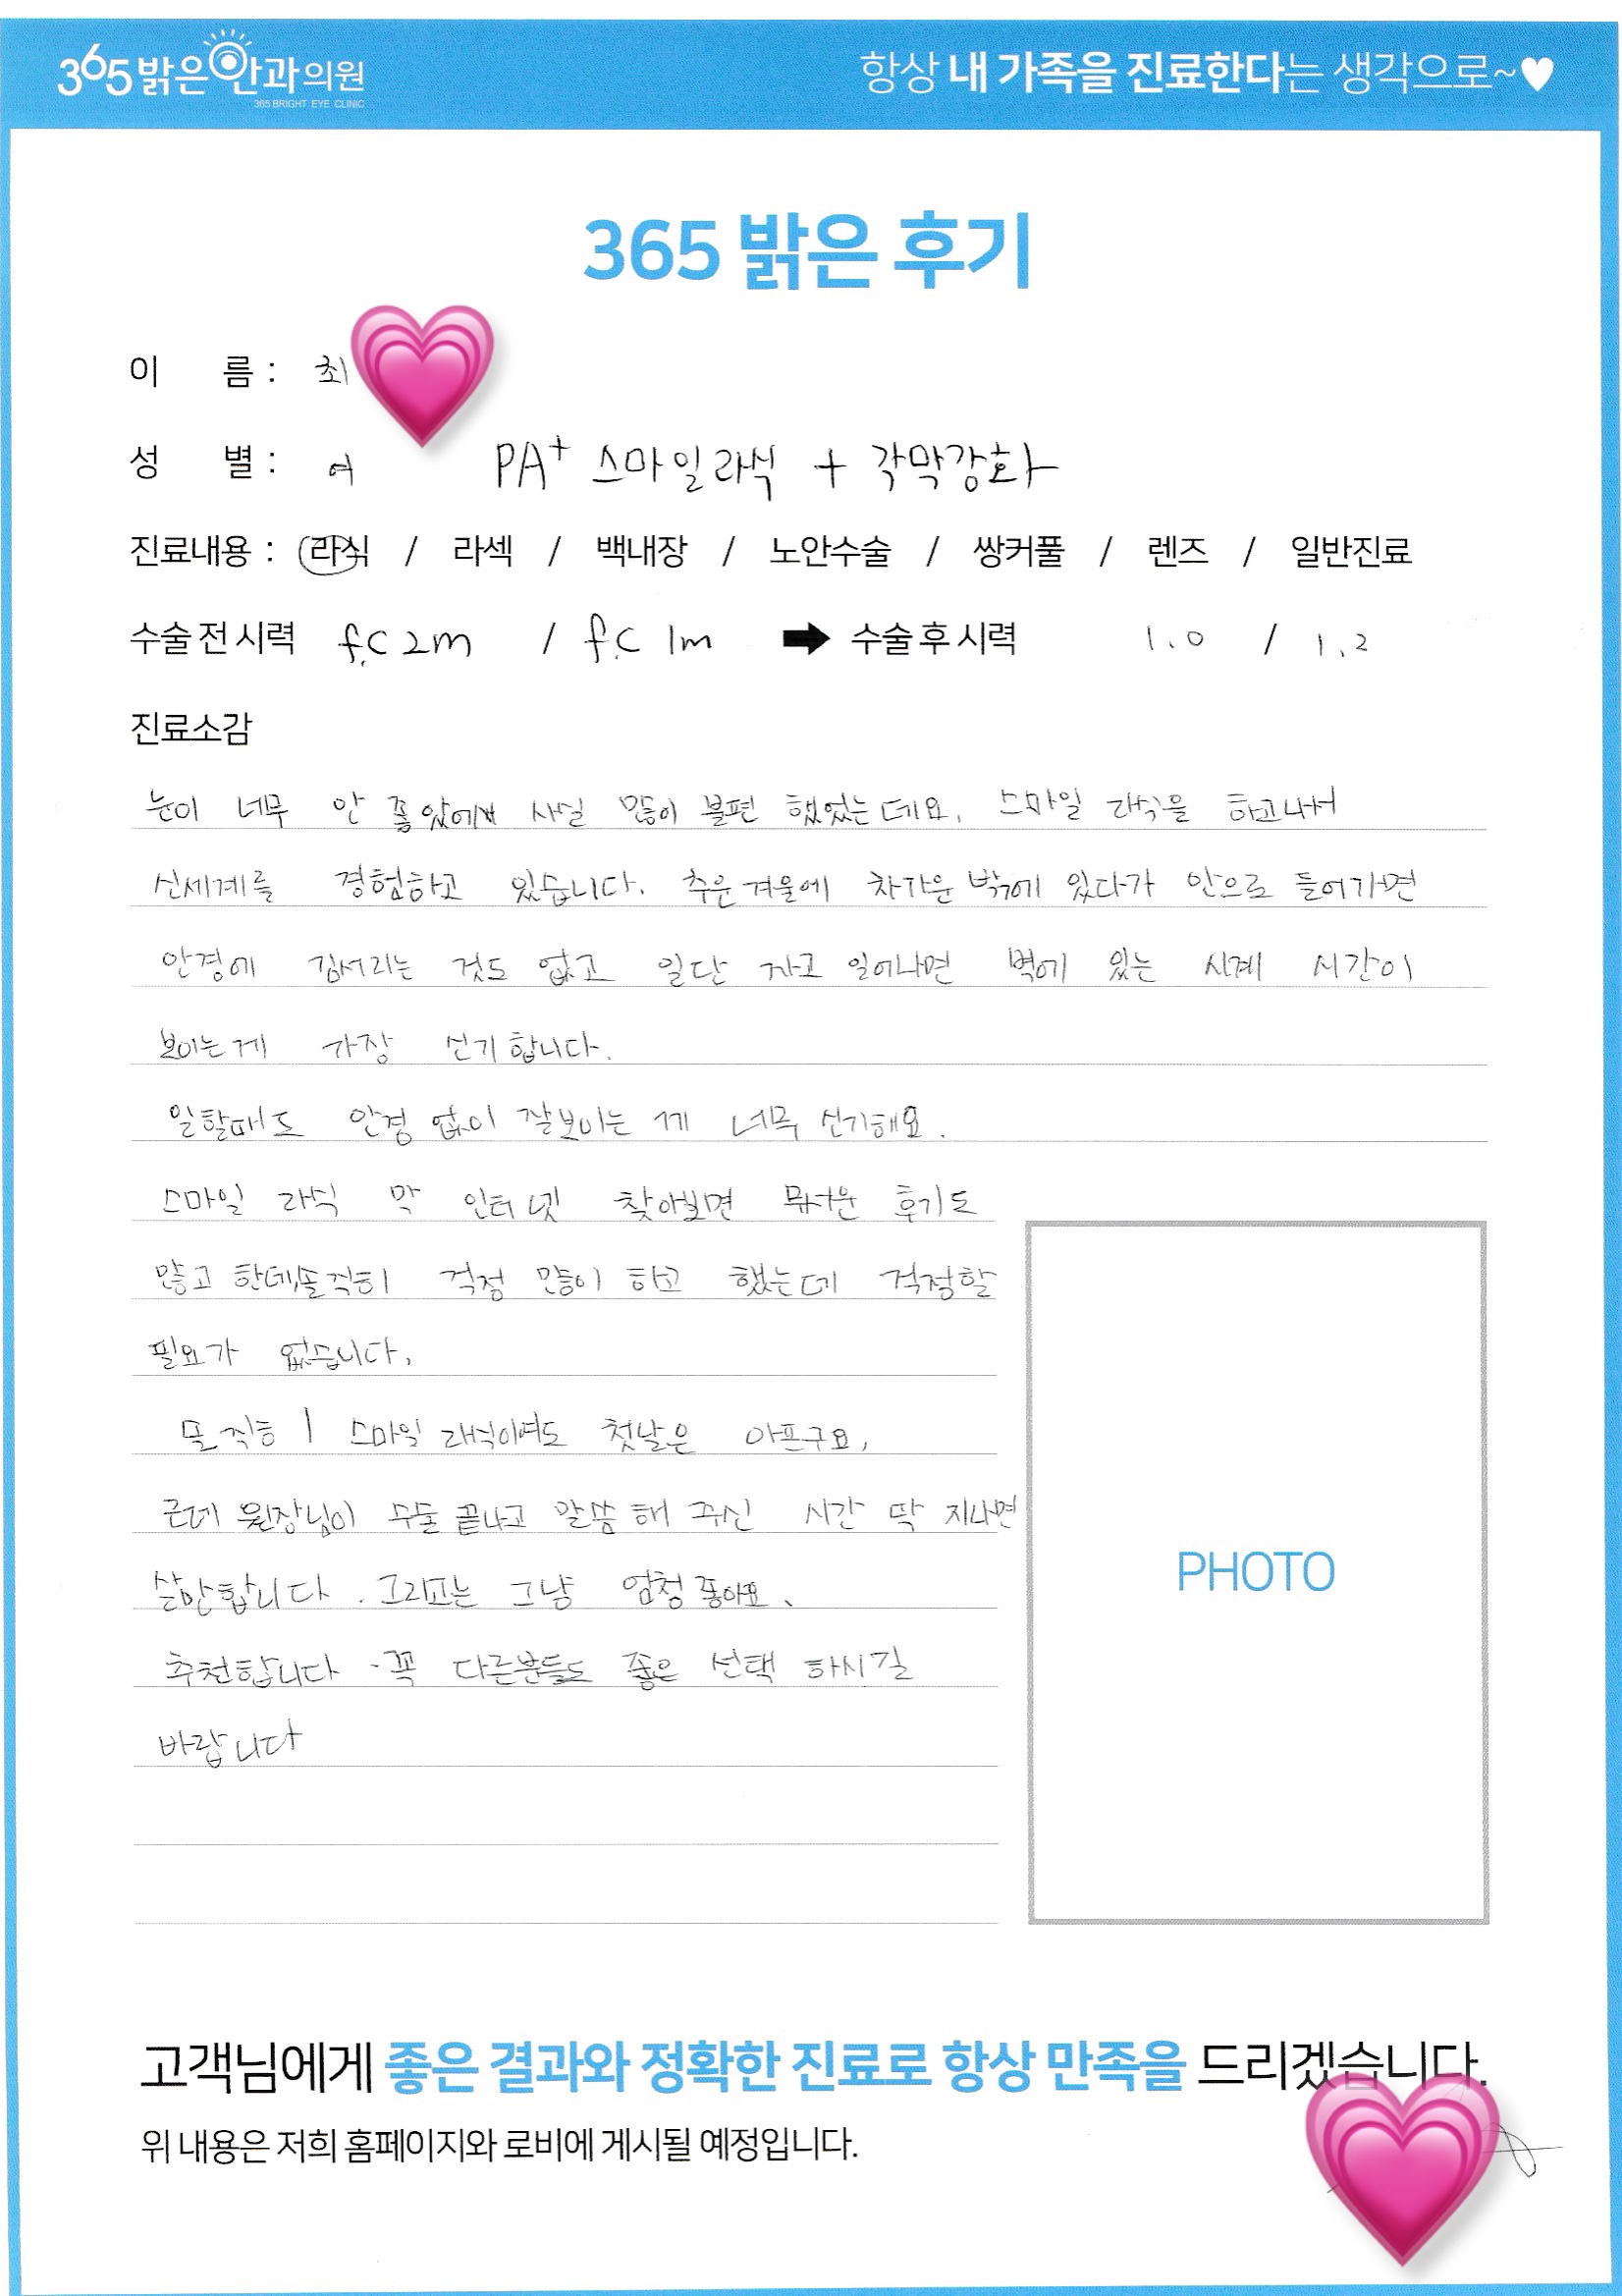 365밝은안과의원
365 BRIGHT EYE CLINIC
항상 내 가족을 진료한다는 생각으로~♥
365 밝은 후기
이 름 : 최
성 별 : 여 PA+ 스마일라식 + 각막강화
진료내용 : 라식 / 라섹 / 백내장 / 노안수술 / 쌍커풀 / 렌즈 / 일반진료
수술 전 시력 f.C 2m / f.C 1m ➡ 수술 후 시력 1.0 / 1.2
진료소감
눈이 너무 안 좋았어서 사실 많이 불편 했었는데요. 스마일 라식을 하고나서
신세계를 경험하고 있습니다. 추운겨울에 차가운 밖에 있다가 안으로 들어가면
안경에 김서리는 것도 없고 일단 자고 일어나면 벽에 있는 시계 시간이
보이는게 가장 신기합니다.
일할때도 안경 없이 잘보이는 게 너무 신기해요.
스마일 라식 막 인터넷 찾아보면 무서운 후기도
많고 한데 솔직히 걱정 많이 하고 했는데 걱정할
필요가 없습니다.
솔직히 스마일 라식이여도 첫날은 아프구요,
근데 원장님이 수술 끝나고 말씀 해 주신 시간 딱 지나면
살만합니다. 그리고는 그냥 엄청 좋아요.
추천합니다. 꼭 다른분들도 좋은 선택 하시길
바랍니다
PHOTO
고객님에게 좋은 결과와 정확한 진료로 항상 만족을 드리겠습니다.
위 내용은 저희 홈페이지와 로비에 게시될 예정입니다.